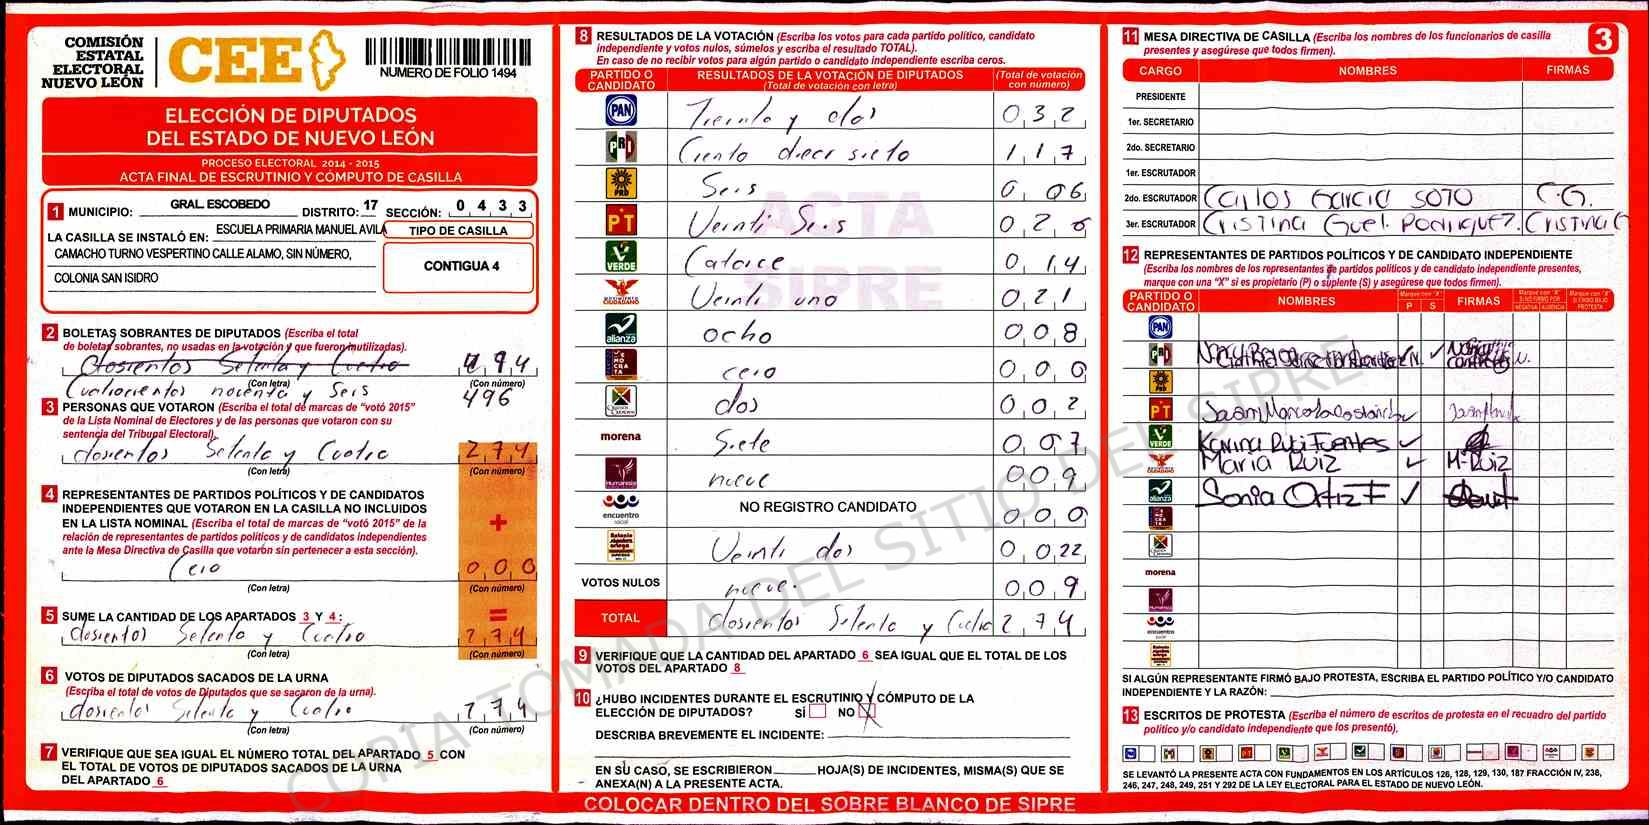 COMISIÓN
ESTATAL
ELECTORAL
NUEVO LEÓN
CEE
NUMERO DE FOLIO 1494
ELECCIÓN DE DIPUTADOS
DEL ESTADO DE NUEVO LEÓN
PROCESO ELECTORAL 2014 - 2015
ACTA FINAL DE ESCRUTINIO Y CÓMPUTO DE CASILLA
1 MUNICIPIO: GRAL. ESCOBEDO DISTRITO: 17 SECCIÓN: 0 4 3 3
LA CASILLA SE INSTALÓ EN: ESCUELA PRIMARIA MANUEL AVILA
CAMACHO TURNO VESPERTINO CALLE ALAMO, SIN NÚMERO,
COLONIA SAN ISIDRO
TIPO DE CASILLA
CONTIGUA 4
2 BOLETAS SOBRANTES DE DIPUTADOS (Escriba el total
de boletas sobrantes, no usadas en la votación y que fueron inutilizadas).
dosientos Setenta y Cuatro
(Con letra) (Con número)
Cuatrocientos noventa y Seis 496
3 PERSONAS QUE VOTARON (Escriba el total de marcas de “votó 2015”
de la Lista Nominal de Electores y de las personas que votaron con su
sentencia del Tribunal Electoral).
dosientos Setenta y Cuatro 2 7 4
(Con letra) (Con número)
4 REPRESENTANTES DE PARTIDOS POLÍTICOS Y DE CANDIDATOS
INDEPENDIENTES QUE VOTARON EN LA CASILLA NO INCLUIDOS
EN LA LISTA NOMINAL (Escriba el total de marcas de “votó 2015” de la
relación de representantes de partidos políticos y de candidatos independientes
ante la Mesa Directiva de Casilla que votarón sin pertenecer a esta sección).
+
Cero 0 0 0
(Con letra) (Con número)
5 SUME LA CANTIDAD DE LOS APARTADOS 3 Y 4: =
dosientos Setenta y Cuatro 2 7 4
(Con letra) (Con número)
6 VOTOS DE DIPUTADOS SACADOS DE LA URNA
(Escriba el total de votos de Diputados que se sacaron de la urna).
dosientos Setenta y Cuatro 2 7 4
(Con letra) (Con número)
7 VERIFIQUE QUE SEA IGUAL EL NÚMERO TOTAL DEL APARTADO 5 CON
EL TOTAL DE VOTOS DE DIPUTADOS SACADOS DE LA URNA
DEL APARTADO 6
8 RESULTADOS DE LA VOTACIÓN (Escriba los votos para cada partido político, candidato
independiente y votos nulos, súmelos y escriba el resultado TOTAL).
En caso de no recibir votos para algún partido o candidato independiente escriba ceros.
PARTIDO O CANDIDATO RESULTADOS DE LA VOTACIÓN DE DIPUTADOS (Total de votación con letra) (Total de votación con número)
PAN Treinta y dos 0 3 2
PRI Ciento diecisiete 1 1 7
PRD Seis 0 06
PT Veinti Seis 0 2 6
VERDE Catorce 0 14
Veinti uno 0 2 1
alianza ocho 0 0 8
cero 0 0 0
dos 0 0 2
morena Siete 0 0 7
Humanista nueve 0 0 9
encuentro social NO REGISTRO CANDIDATO 0 0 0
Veinti dos 0 0 22
VOTOS NULOS nueve. 0 0 9
TOTAL dosientos Setenta y Cuatro 2 7 4
ACTA
SIPRE
9 VERIFIQUE QUE LA CANTIDAD DEL APARTADO 6 SEA IGUAL QUE EL TOTAL DE LOS
VOTOS DEL APARTADO 8
10 ¿HUBO INCIDENTES DURANTE EL ESCRUTINIO Y CÓMPUTO DE LA
ELECCIÓN DE DIPUTADOS? SÍ NO X
DESCRIBA BREVEMENTE EL INCIDENTE:
EN SU CASO, SE ESCRIBIERON HOJA(S) DE INCIDENTES, MISMA(S) QUE SE
ANEXA(N) A LA PRESENTE ACTA.
COLOCAR DENTRO DEL SOBRE BLANCO DE SIPRE
11 MESA DIRECTIVA DE CASILLA (Escriba los nombres de los funcionarios de casilla
presentes y asegúrese que todos firmen).
3
CARGO NOMBRES FIRMAS
PRESIDENTE
1er. SECRETARIO
2do. SECRETARIO
1er. ESCRUTADOR
2do. ESCRUTADOR Carlos Garcia SOTO C.G.
3er. ESCRUTADOR Cristina Guel Rodriguez. Cristina G
12 REPRESENTANTES DE PARTIDOS POLÍTICOS Y DE CANDIDATO INDEPENDIENTE
(Escriba los nombres de los representantes de partidos políticos y de candidato independiente presentes,
marque con una “X” si es propietario (P) o suplente (S) y asegúrese que todos firmen).
PARTIDO O CANDIDATO NOMBRES Marque con "X" P S FIRMAS Marque con "X" SI NO FIRMÓ POR NEGATIVA AUSENCIA Marque con "X" SI FIRMÓ BAJO PROTESTA
PAN
PRI
PRD
PT
VERDE Karina Rubi Fuentes
Maria Ruiz M-Ruiz
alianza Sonia Ortiz F
morena
Humanista
encuentro social
SI ALGÚN REPRESENTANTE FIRMÓ BAJO PROTESTA, ESCRIBA EL PARTIDO POLÍTICO Y/O CANDIDATO
INDEPENDIENTE Y LA RAZÓN:
13 ESCRITOS DE PROTESTA (Escriba el número de escritos de protesta en el recuadro del partido
político y/o candidato independiente que los presentó).
SE LEVANTÓ LA PRESENTE ACTA CON FUNDAMENTOS EN LOS ARTÍCULOS 126, 128, 129, 130, 187 FRACCIÓN IV, 238,
246, 247, 248, 249, 251 Y 292 DE LA LEY ELECTORAL PARA EL ESTADO DE NUEVO LEÓN.
COPIA TOMADA DEL SITIO DEL SIPRE